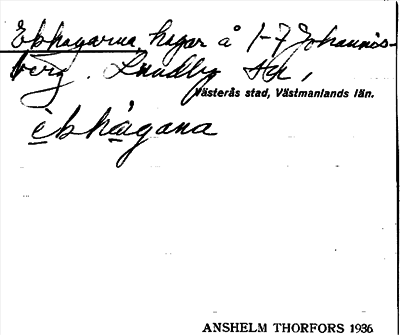 Ebbhagarna, hagar å 1-7 Johannis-
berg. Lundby sn,
Västerås stad, Västmanlands län.
èbhàgana
ANSHELM THORFORS 1936